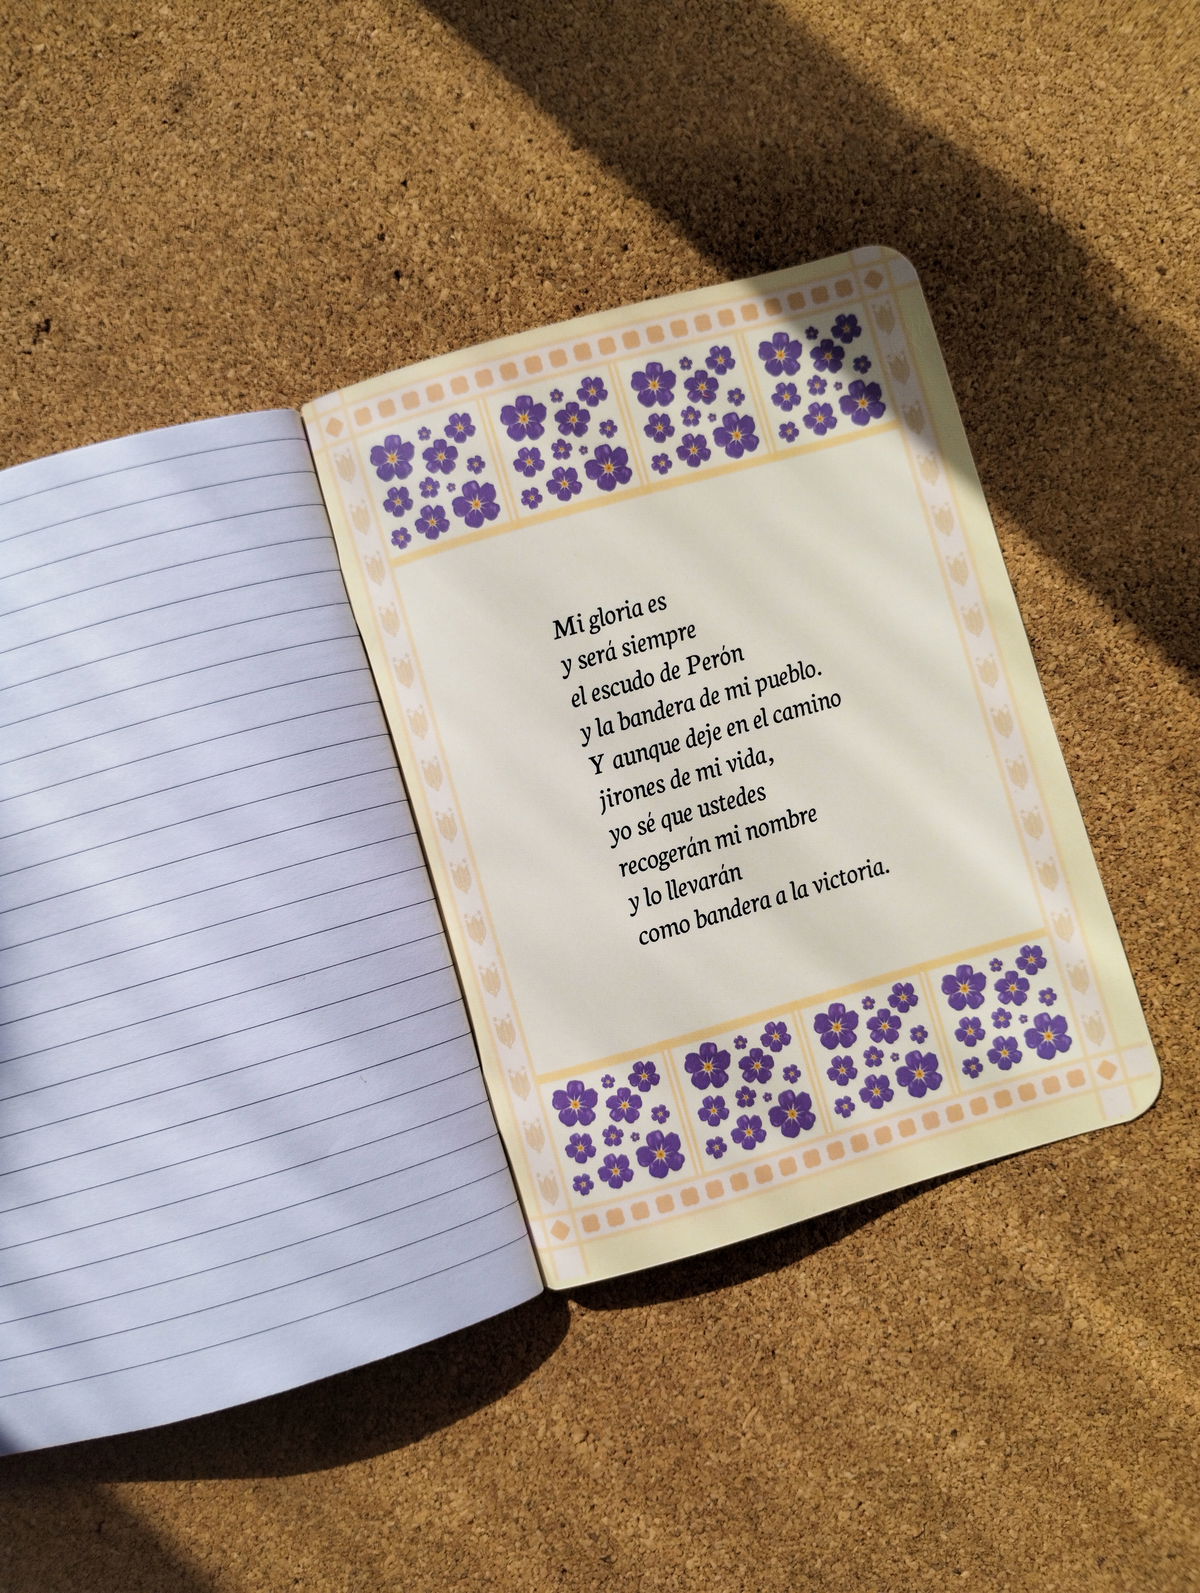 Mi gloria es
y será siempre
el escudo de Perón
y la bandera de mi pueblo.
Y aunque deje en el camino
jirones de mi vida,
yo sé que ustedes
recogerán mi nombre
y lo llevarán
como bandera a la victoria.